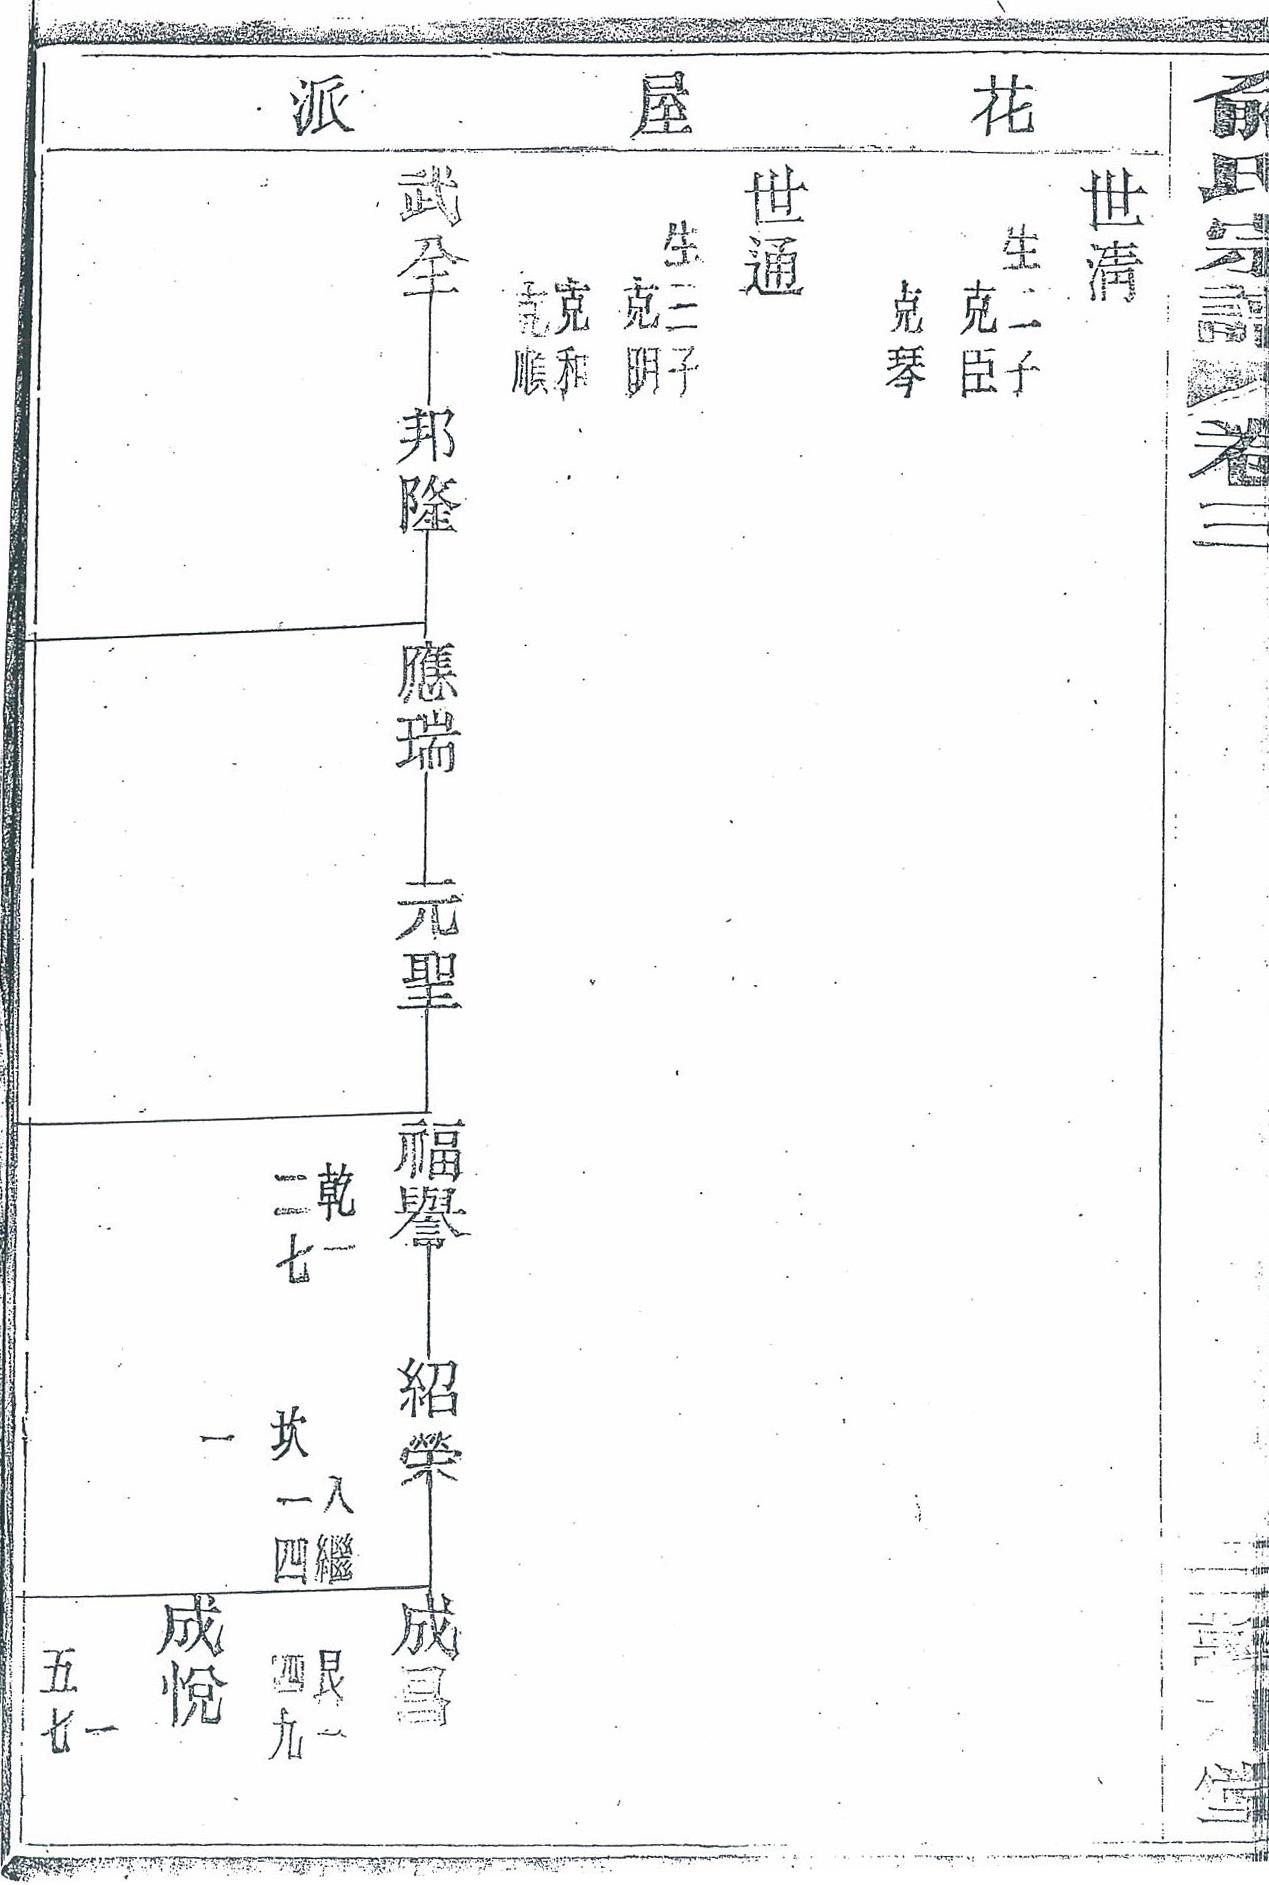 俞氏宗譜
卷三
花屋派
世清
生二子
克臣
克琴
世通
生三子
克明
克和
克順
武全
邦隆
應瑞
元聖
福譽
乾一
二七
紹榮
入繼
坎一四
一
成昌
艮一
四九
成悅
一
五七